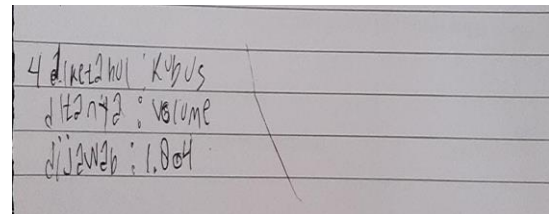 4 diketahui : Kubus
ditanya : volume
dijawab : 1.804